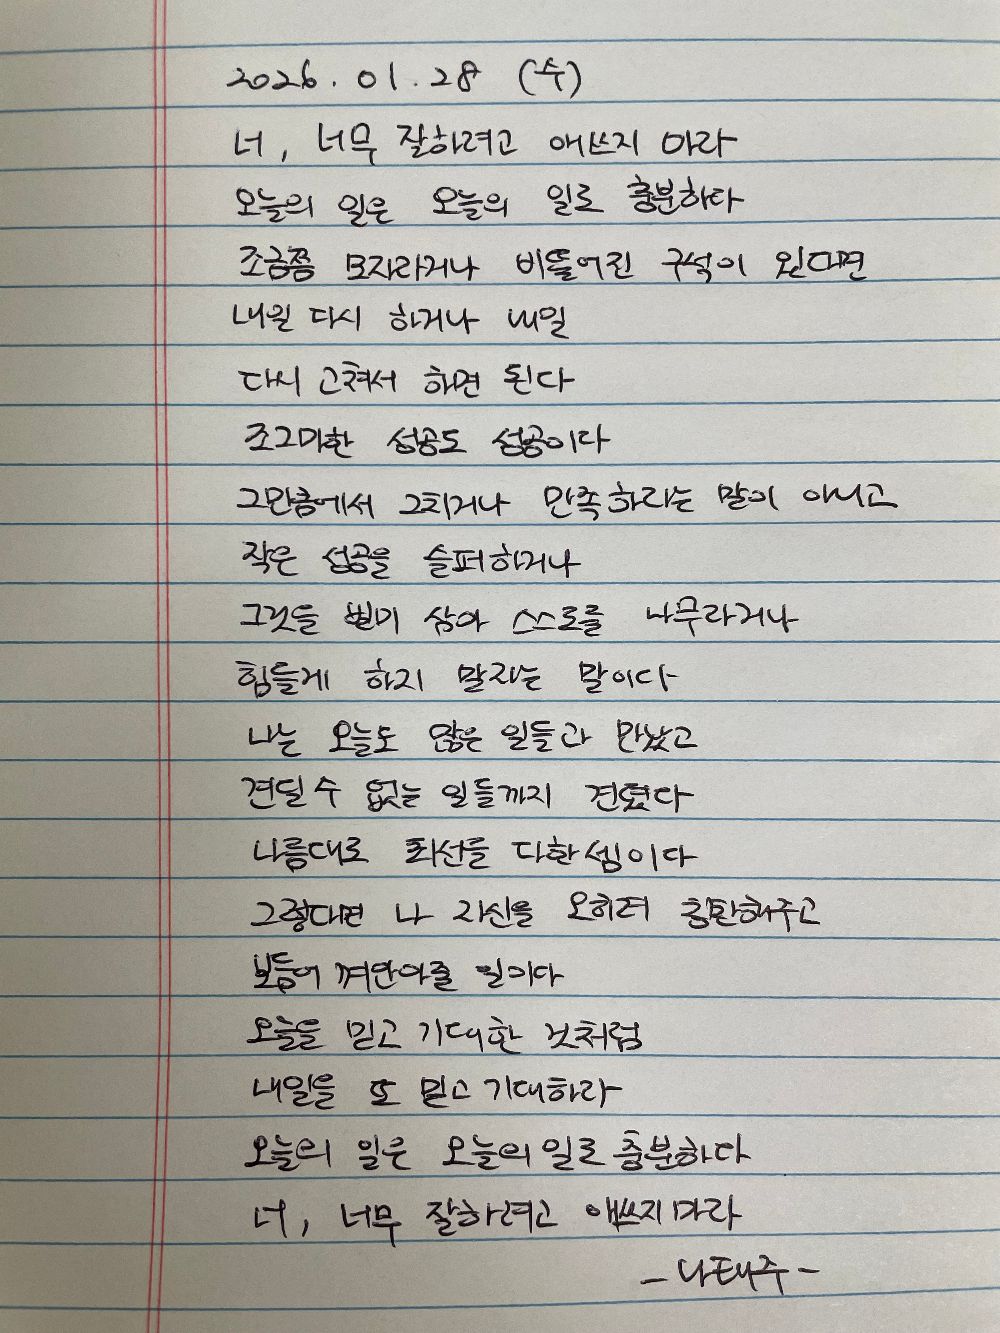 2026.01.28 (수)
너, 너무 잘하려고 애쓰지 마라
오늘의 일은 오늘의 일로 충분하다
조금쯤 모자라거나 비뚤어진 구석이 있다면
내일 다시 하거나 내일
다시 고쳐서 하면 된다
조그마한 성공도 성공이다
그만큼에서 그치거나 만족하라는 말이 아니고
작은 성공을 슬퍼하거나
그것을 빌미 삼아 스스로를 나무라거나
힘들게 하지 말자는 말이다
나는 오늘도 많은 일들과 만났고
견딜 수 없는 일들까지 견뎠다
나름대로 최선을 다한 셈이다
그렇다면 나 자신을 오히려 칭찬해주고
보듬어 껴안아줄 일이다
오늘을 믿고 기대한 것처럼
내일을 또 믿고 기대하라
오늘의 일은 오늘의 일로 충분하다
너, 너무 잘하려고 애쓰지 마라
- 나태주 -